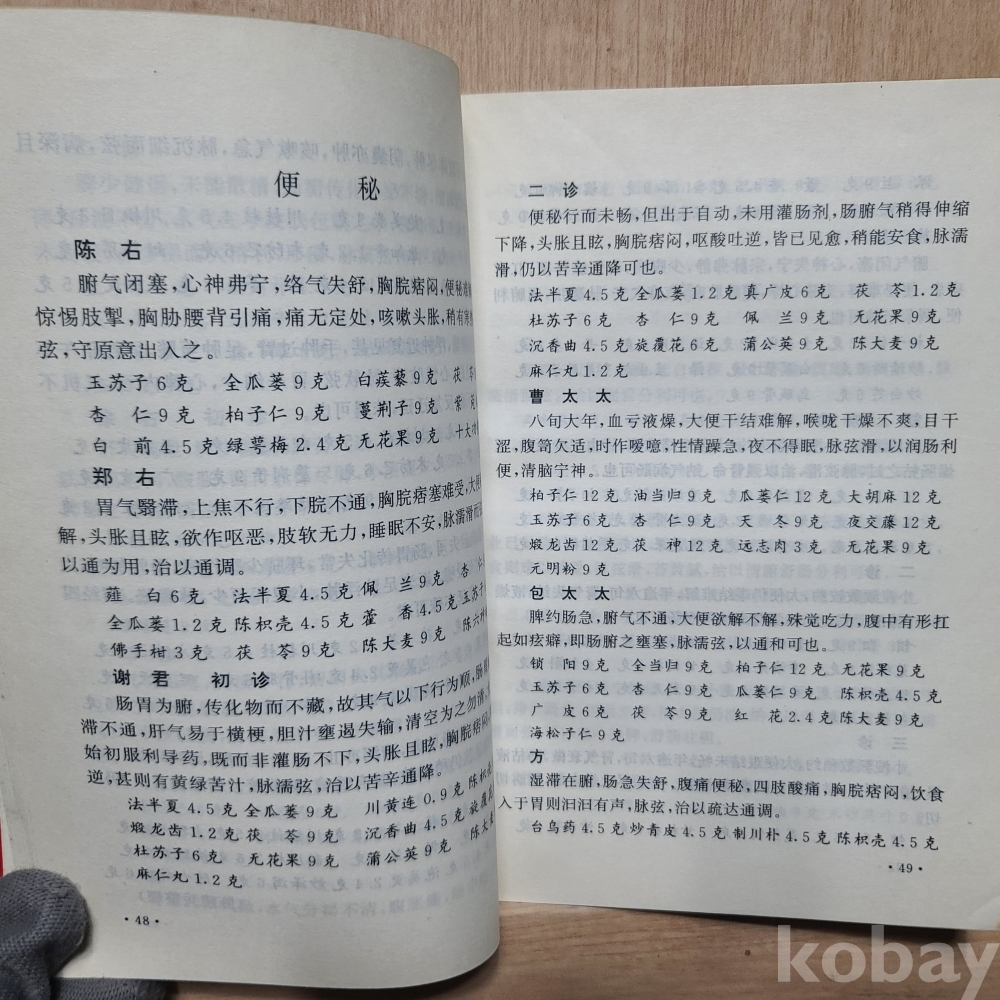 便 秘
陈 右
腑气闭塞，心神弗宁，络气失舒，胸脘痞闷，便秘
惊惕肢掣，胸胁腰背引痛，痛无定处，咳嗽头胀，稍有寒
弦，守原意出入之。
玉苏子 6 克 全瓜蒌 9 克 白蒺藜 9 克 茯
杏 仁 9 克 柏子仁 9 克 蔓荆子 9 克 紫 菀
白 前 4.5 克 绿萼梅 2.4 克 无花果 9 克 十大功
郑 右
胃气翳滞，上焦不行，下脘不通，胸脘痞塞难受，大便
解，头胀且眩，欲作呕恶，肢软无力，睡眠不安，脉濡滑而
以通为用，治以通调。
薤 白 6 克 法半夏 4.5 克 佩 兰 9 克 杏 仁
全瓜蒌 1.2 克 陈枳壳 4.5 克 藿 香 4.5 克 玉苏子
佛手柑 3 克 茯 苓 9 克 陈大麦 9 克 陈六神
谢 君 初 诊
肠胃为腑，传化物而不藏，故其气以下行为顺，肠
滞不通，肝气易于横梗，胆汁壅遏失输，清空为之勿清，
始初服利导药，既而非灌肠不下，头胀且眩，胸脘痞闷
逆，甚则有黄绿苦汁，脉濡弦，治以苦辛通降。
法半夏 4.5 克 全瓜蒌 9 克 川黄连 0.9 克 陈枳
煅龙齿 1.2 克 茯 苓 9 克 沉香曲 4.5 克 旋覆
杜苏子 6 克 无花果 9 克 蒲公英 9 克 陈大麦
麻仁丸 1.2 克
· 48 ·
二 诊
便秘行而未畅，但出于自动，未用灌肠剂，肠腑气稍得伸缩
下降，头胀且眩，胸脘痞闷，呕酸吐逆，皆已见愈，稍能安食，脉濡
滑，仍以苦辛通降可也。
法半夏 4.5 克 全瓜蒌 1.2 克 真广皮 6 克 茯 苓 1.2 克
杜苏子 6 克 杏 仁 9 克 佩 兰 9 克 无花果 9 克
沉香曲 4.5 克 旋覆花 6 克 蒲公英 9 克 陈大麦 9 克
麻仁丸 1.2 克
曹 太 太
八旬大年，血亏液燥，大便干结难解，喉咙干燥不爽，目干
涩，腹笥欠适，时作嗳噫，性情躁急，夜不得眠，脉弦滑，以润肠利
便，清脑宁神。
柏子仁 12 克 油当归 9 克 瓜蒌仁 12 克 大胡麻 12 克
玉苏子 6 克 杏 仁 9 克 天 冬 9 克 夜交藤 12 克
煅龙齿 12 克 茯 神 12 克 远志肉 3 克 无花果 9 克
元明粉 9 克
包 太 太
脾约肠急，腑气不通，大便欲解不解，殊觉吃力，腹中有形扛
起如痃癖，即肠腑之壅塞，脉濡弦，以通和可也。
锁 阳 9 克 全当归 9 克 柏子仁 12 克 无花果 9 克
玉苏子 6 克 杏 仁 9 克 瓜蒌仁 9 克 陈枳壳 4.5 克
广 皮 6 克 茯 苓 9 克 红 花 2.4 克 陈大麦 9 克
海松子仁 9 克
方
湿滞在腑，肠急失舒，腹痛便秘，四肢酸痛，胸脘痞闷，饮食
入于胃则汩汩有声，脉弦，治以疏达通调。
台乌药 4.5 克 炒青皮 4.5 克 制川朴 4.5 克 陈枳壳 4.5 克
· 49 ·
kobay